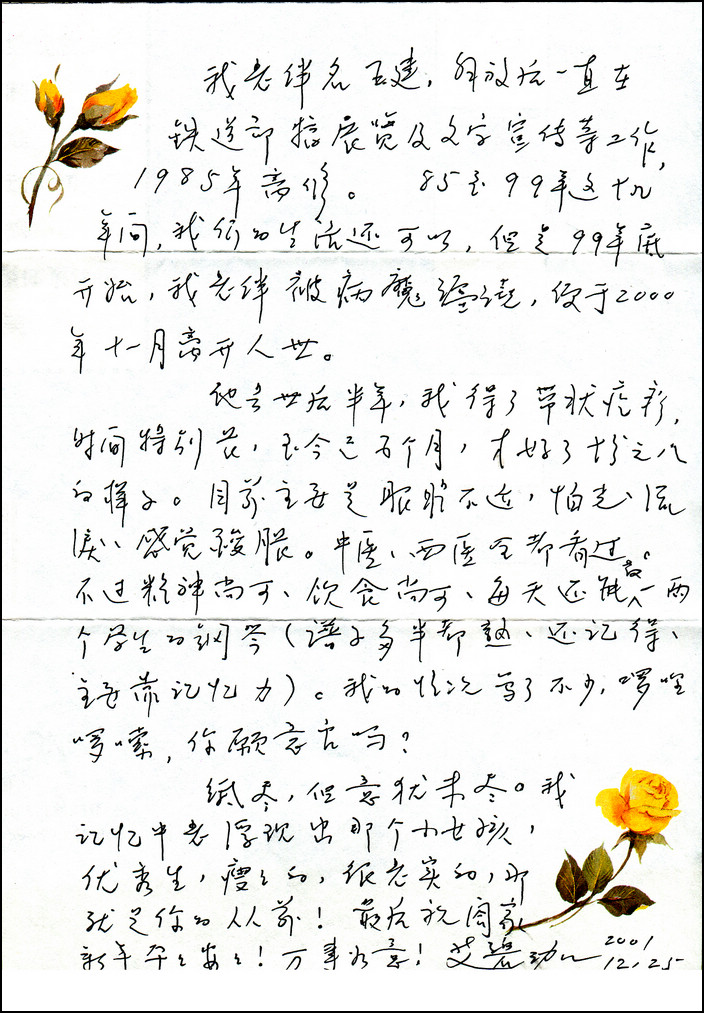 我老伴名王建，解放后一直在
铁道部搞展览及文字宣传等工作，
1985年离休。 85至99年这十几
年间，我们的生活还可以，但是99年底
开始，我老伴被病魔缠绕，便于2000
年十一月离开人世。
他去世后半年，我得了带状疱疹，
时间特别长，至今已五个月，才好了十分之八
的样子。目前主要是眼睛不适，怕光、流
泪、感觉酸胀。中医、西医全都看过。
不过精神尚可、饮食尚可、每天还能教一两
个学生的钢琴（谱子多半都熟、还记得、
主要靠记忆力）。我的情况写了不少，啰哩
啰嗦，你愿意看吗？
纸尽，但意犹未尽。我
记忆中老浮现出那个小女孩，
优秀生，瘦瘦的，很老实的，那
就是你的从前！最后祝阖家
新年平平安安！万事如意！ 2001
12.25